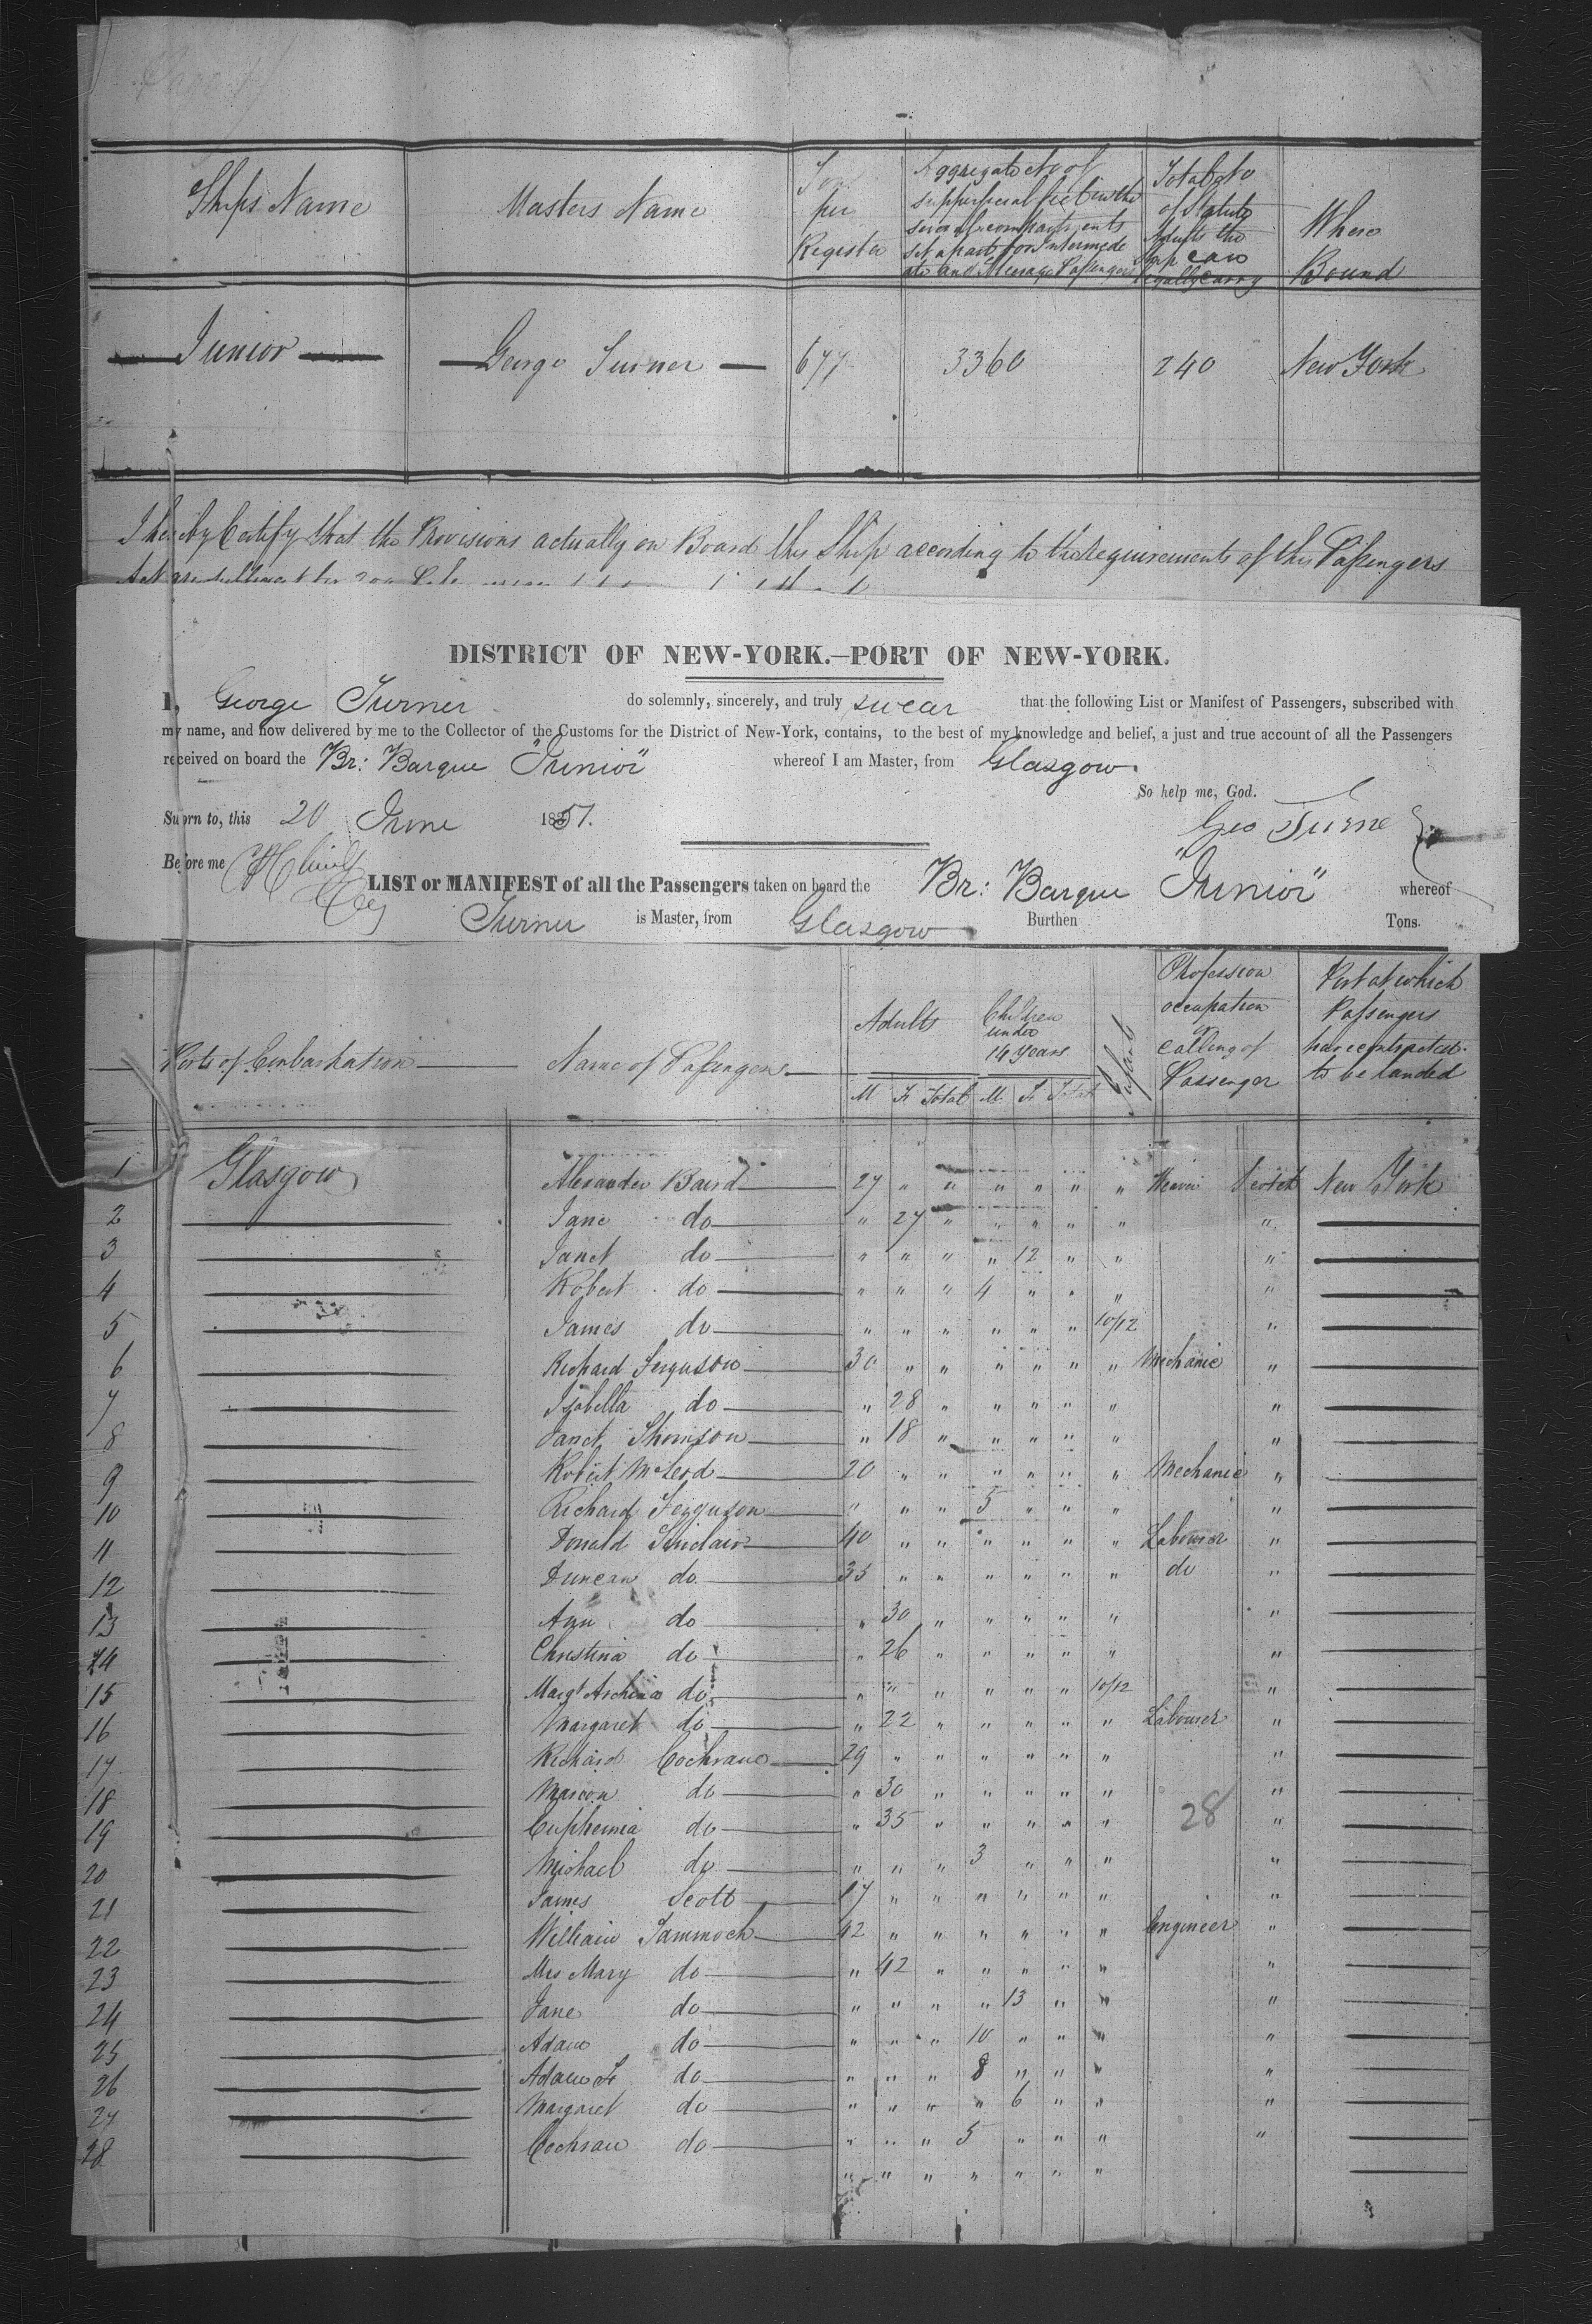 Ships Name
Masters Name
Ton
per
Register
Aggregate No of
supperficial feet in the
several compartments
set apart for Intermede
ate and Steerage Passengers
Total No
of Statute
Adults the
Ship can
legally carry
Where
Bound
Junior George Turner 677 3360 240 New York
I hereby Certify that the Provisions actually on Board this Ship according to the requirements of the Passengers
DISTRICT OF NEW-YORK.—PORT OF NEW-YORK.
I, George Turner do solemnly, sincerely, and truly swear that the following List or Manifest of Passengers, subscribed with
my name, and now delivered by me to the Collector of the Customs for the District of New-York, contains, to the best of my knowledge and belief, a just and true account of all the Passengers
received on board the Br: Barque "Junior" whereof I am Master, from Glasgow.
So help me, God.
Sworn to, this 20 June 1851.
Geo Turner
Before me
LIST or MANIFEST of all the Passengers taken on board the Br: Barque "Junior" whereof
Turner is Master, from Glasgow Burthen Tons.
Ports of Embarkation
Name of Passengers
Adults
Children
under
14 years
Infant
Profession
occupation
or
calling of
Passenger
Port at which
Passengers
have contracted
to be landed
M F Total M. F Total
1 Glasgow Alexander Baird 27 " " " " " " Weaver Scotch New York
2 Jane do " 27 " " " " " "
3 Janet do " " " " 12 " " "
4 Robert do " " " 4 " " " "
5 James do " " " " " " 10/12 "
6 Richard Ferguson 30 " " " " " " Mechanic "
7 Isabella do " 28 " " " " " "
8 Janet Thomson " 18 " " " " " "
9 Robert McLeod 20 " " " " " " Mechanic "
10 Richard Ferguson " " " 5 " " " "
11 Donald Sinclair 40 " " " " " " Labourer "
12 Duncan do 35 " " " " " " do "
13 Ann do " 30 " " " " " "
14 Christina do " 26 " " " " " "
15 Margt do " " " " " " 10/12 "
16 Margaret do " 22 " " " " " Labourer "
17 Richard Cochrane 29 " " " " " " "
18 Marion do " 30 " " " " " "
19 Euphemia do " 35 " " " " " 28 "
20 Michael do " " " 3 " " " "
21 James Scott 17 " " " " " " "
22 William Tammock 42 " " " " " " Engineer "
23 Mrs Mary do " 42 " " " " " "
24 Jane do " " " " 13 " " "
25 Adam do " " " 10 " " " "
26 do " " " 8 " " " "
27 Margaret do " " " " 6 " " "
28 Cochran do " " " 5 " " " "
" " " " " " "